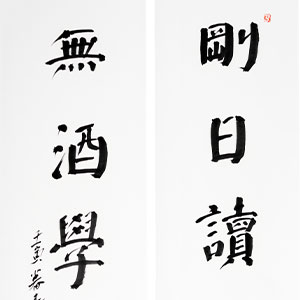 剛日讀
無酒學
壬寅